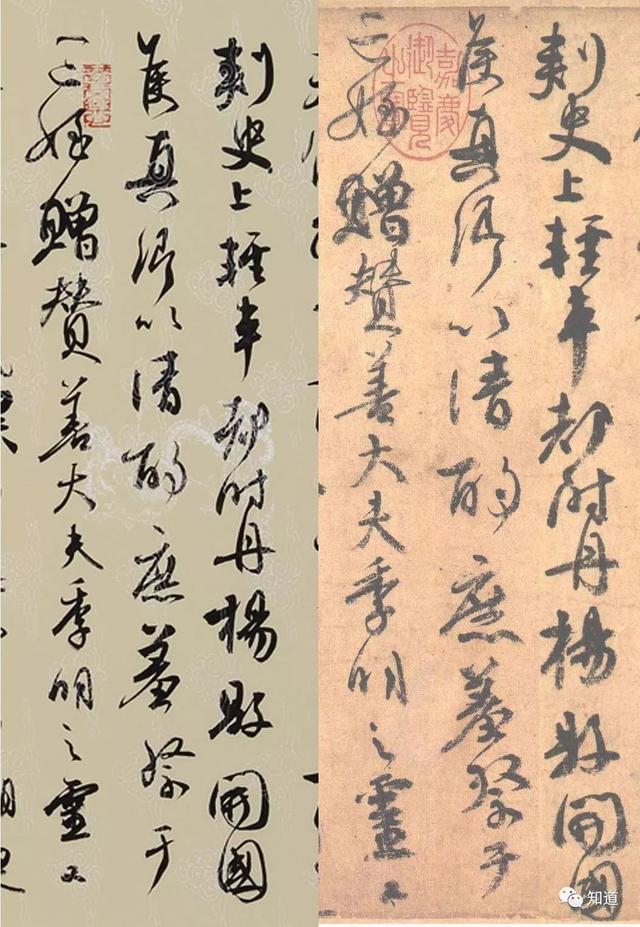 刺史上輕車都尉丹楊縣開國
侯真卿以清酌庶羞祭于
亡姪贈贊善大夫季明之靈曰
嘉慶御覽之寶
刺史上輕車都尉丹楊縣開國
侯真卿以清酌庶羞祭于
亡姪贈贊善大夫季明之靈曰
知道